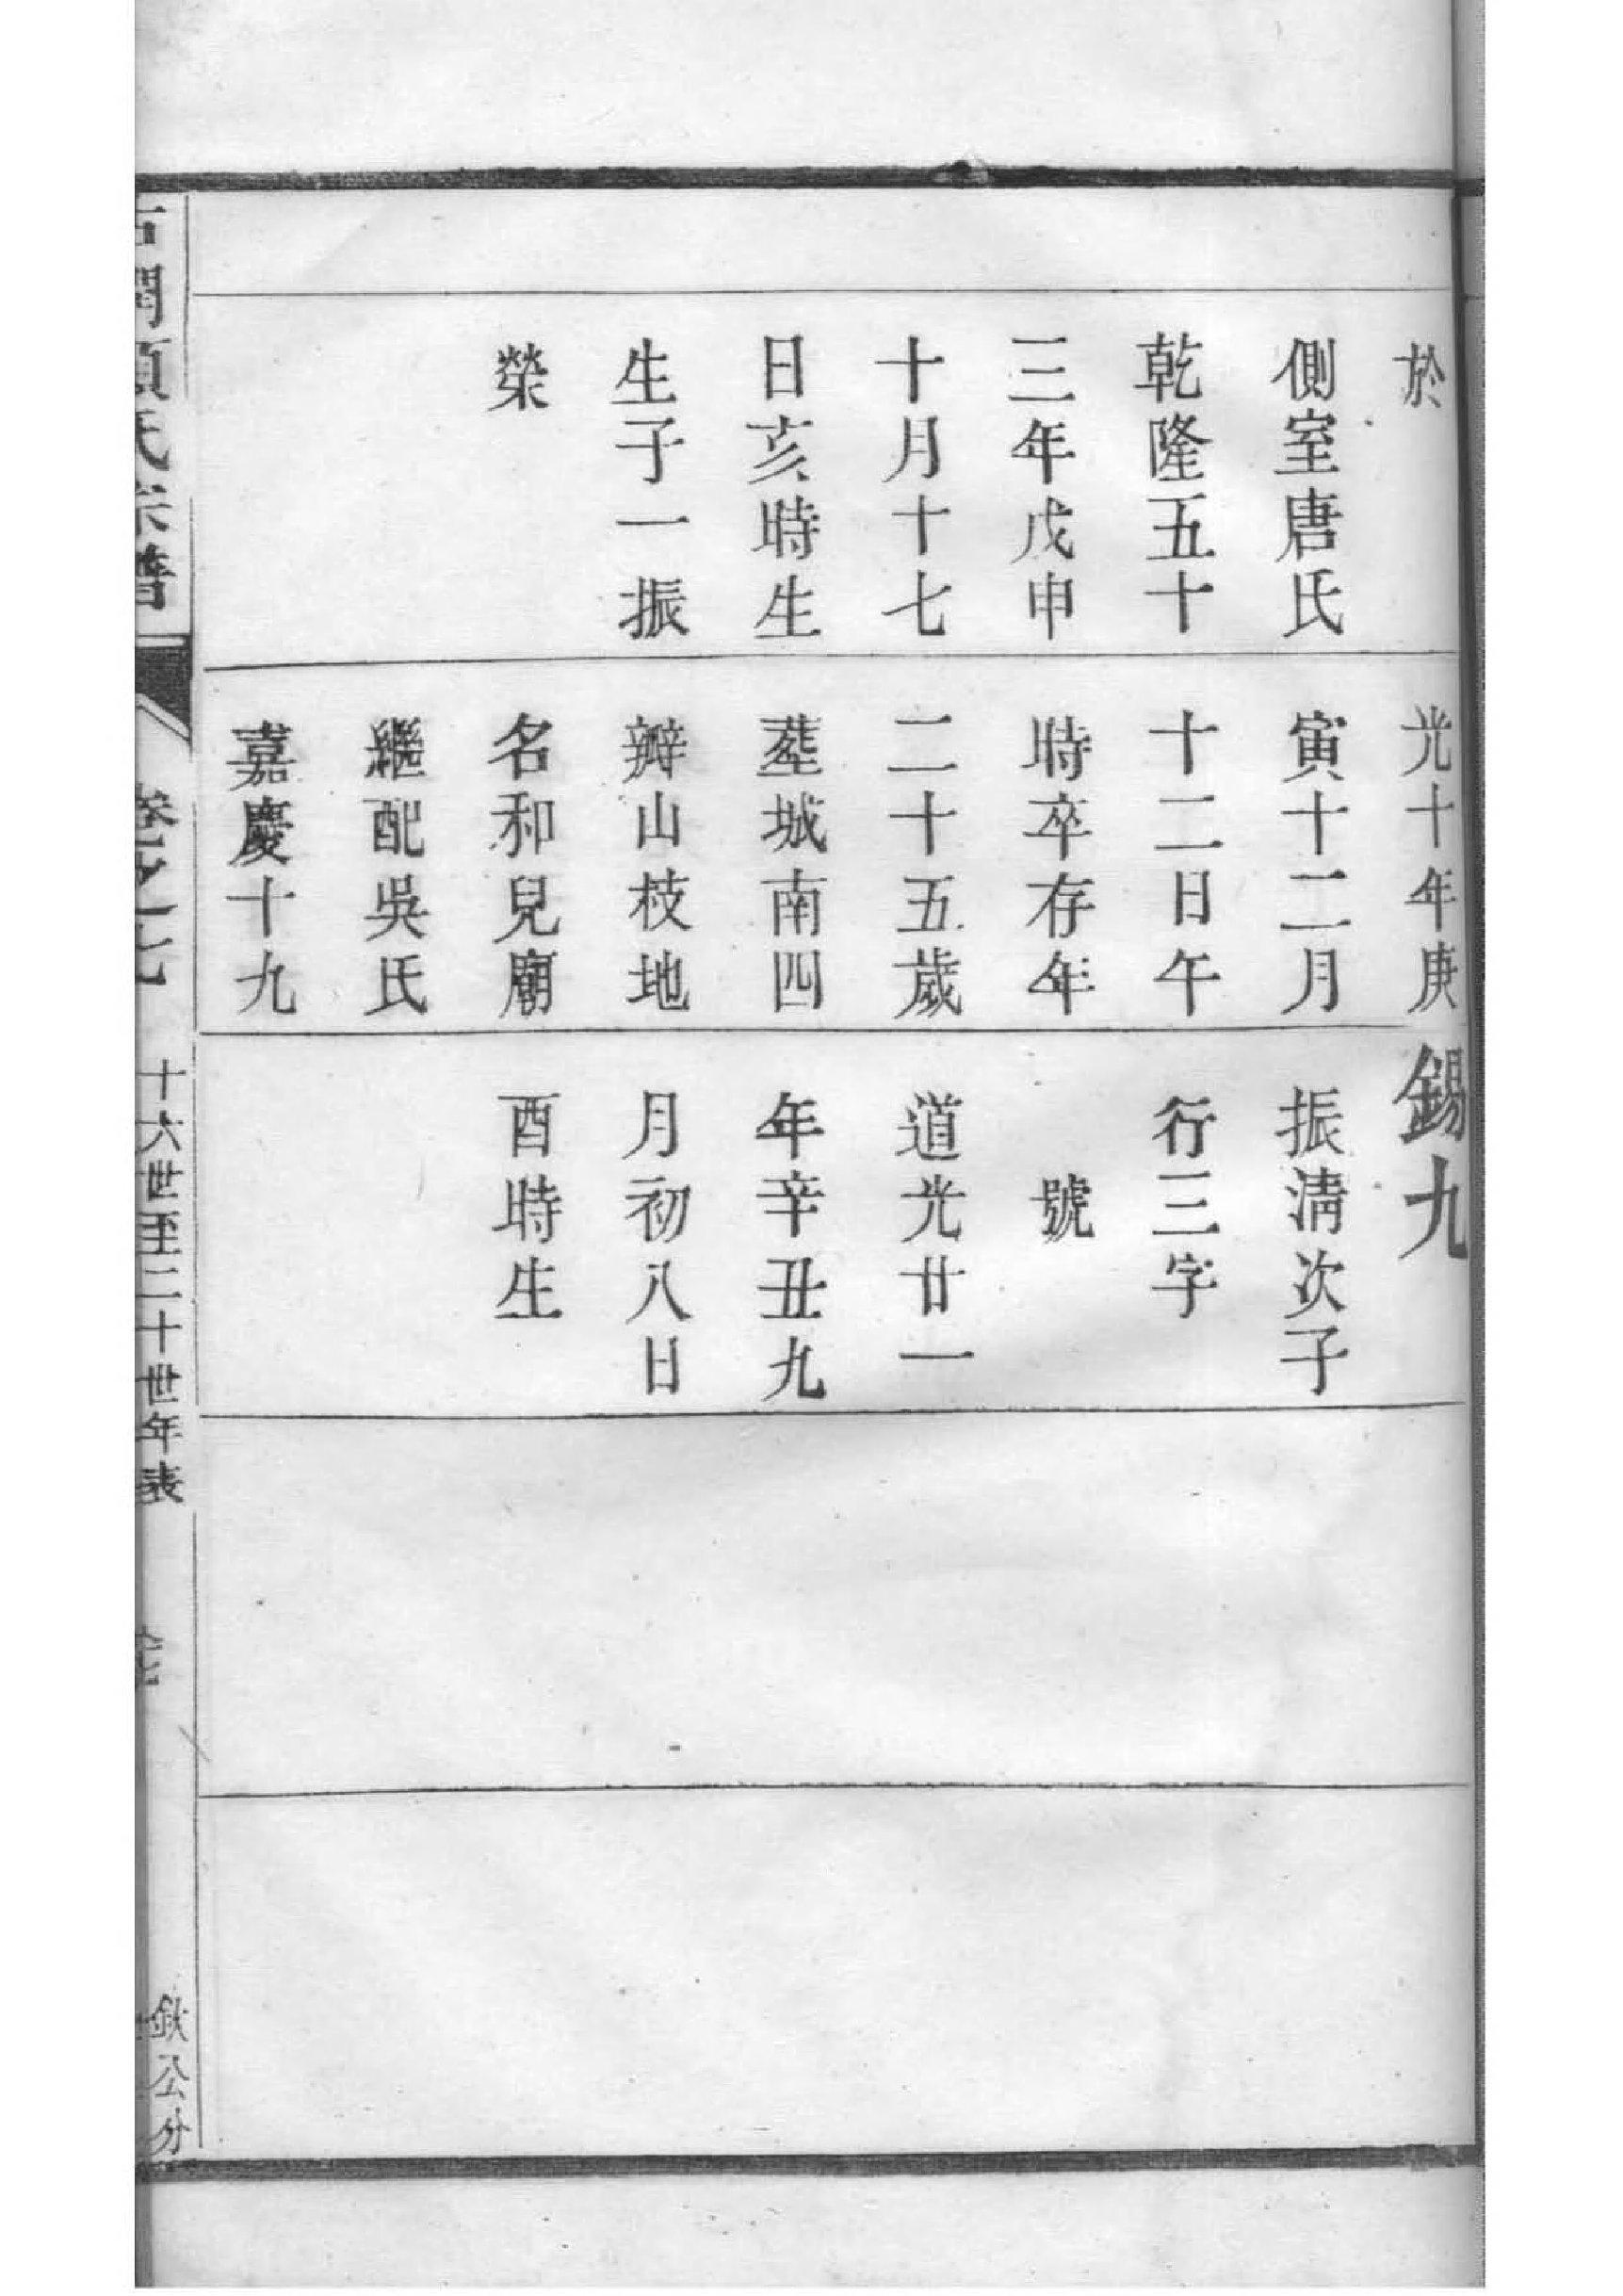 於
側室唐氏
乾隆五十
三年戊申
十月十七
日亥時生
生子一振
榮
光十年庚
寅十二月
十二日午
時卒存年
二十五歲
塟城南四
辦山枝地
名和兒廟
繼配吳氏
嘉慶十九
錫九
振淸次子
行三字
號
道光廿一
年辛丑九
月初八日
酉時生
氏宗譜
卷之十七
十六世至二十世年表
欽公分